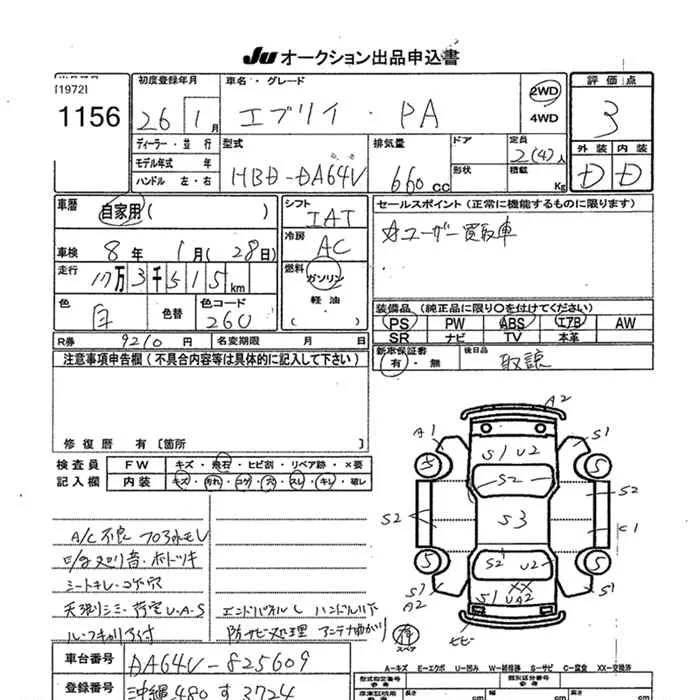 JU オークション出品申込書
[1972]
1156
初度登録年月
26 1月
ディーラー・並行
モデル年式 年
ハンドル 左・右
車名・グレード
エブリイ・PA
2WD
4WD
評価点
3
型式
HBD-DA64V
排気量
660cc
ドア
形状
定員
2(4)人
積載
Kg
外装 内装
D D
車歴
自家用( )
車検 8年 1月(28日)
走行 17万3千515km
色 白 色替 色コード 260
シフト
IAT
冷房
AC
燃料
ガソリン
軽油
セールスポイント(正常に機能するものに限ります)
☆ユーザー買取車
装備品(純正品に限り○を付けてください)
PS PW ABS エアB AW
SR ナビ TV 本革
新車保証書
有・無
後日品
取説
R券 9210円 名変期限 月 日
注意事項申告欄(不具合内容等は具体的に記入して下さい)
修復歴 有〔箇所 〕
検査員 FW キズ・飛石・ヒビ割・リペア跡・×要
記入欄 内装 キズ・汚れ・コゲ・穴・スレ・キレ・破レ
A/C不良
シートキレ・コゲ穴
天張りシミ・荷室U・A・S
防サビ処理 アンテナ曲がり
A2
A1
S1
S1 U2
S2
S2
S2
S3
C1
S2
U2
S1
A2
S1
XX
S1 UA2
5
5
5
5
スペア
車台番号 DA64V-825609
登録番号 沖縄 480 す 3724
A-キズ E-エクボ U-凹み W-補修跡 S-サビ C-腐食 XX-交換済
型式指定番号
類別区分番号
長さ
cm
cm
cm